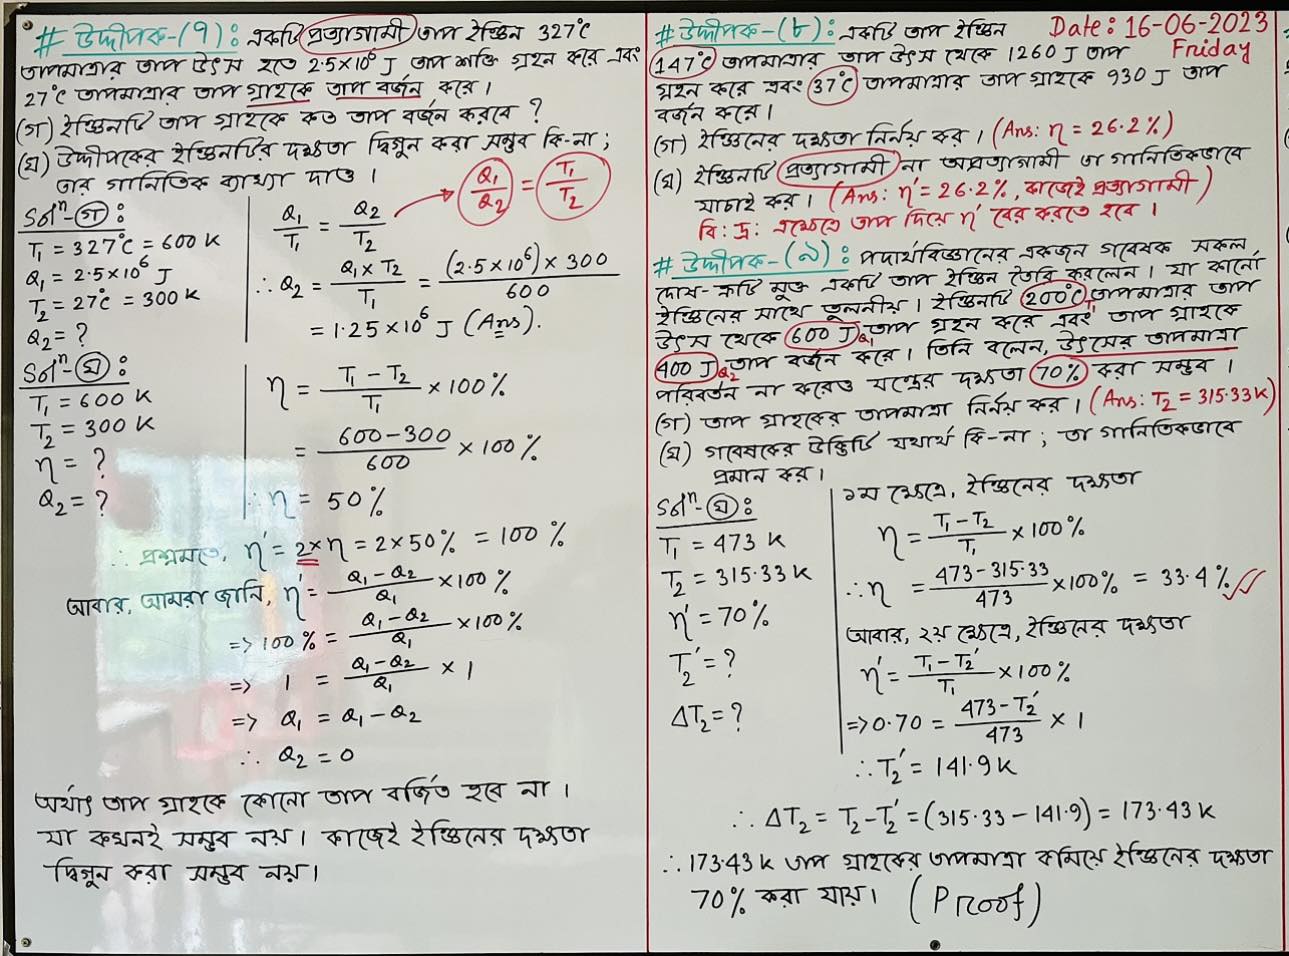 # উদ্দীপক-(৭): একটি প্রত্যাগামী তাপ ইঞ্জিন 327°C
তাপমাত্রার তাপ উৎস হতে 2.5×10⁶ J তাপ শক্তি গ্রহন করে এবং
27°C তাপমাত্রার তাপ গ্রাহকে তাপ বর্জন করে।
(গ) ইঞ্জিনটি তাপ গ্রাহকে কত তাপ বর্জন করবে ?
(ঘ) উদ্দীপকের ইঞ্জিনটির দক্ষতা দ্বিগুন করা সম্ভব কি-না ;
তার গানিতিক ব্যাখ্যা দাও।
Solⁿ-(গ):
T₁ = 327°C = 600 K
Q₁ = 2.5×10⁶ J
T₂ = 27°C = 300 K
Q₂ = ?
Q₁/T₁ = Q₂/T₂ → Q₁/Q₂ = T₁/T₂
∴ Q₂ = (Q₁×T₂)/T₁ = ((2.5×10⁶)×300)/600
= 1.25×10⁶ J (Ans).
Solⁿ-(ঘ):
T₁ = 600 K
T₂ = 300 K
η = ?
Q₂ = ?
η = (T₁-T₂)/T₁ ×100%
= (600-300)/600 ×100%
∴ η = 50%
∴ প্রশ্নমতে, η′ = 2×η = 2×50% = 100%
আবার, আমরা জানি, η′ = (Q₁-Q₂)/Q₁ ×100%
=> 100% = (Q₁-Q₂)/Q₁ ×100%
=> 1 = (Q₁-Q₂)/Q₁ × 1
=> Q₁ = Q₁-Q₂
∴ Q₂ = 0
অর্থাৎ তাপ গ্রাহকে কোনো তাপ বর্জিত হবে না।
যা কখনই সম্ভব নয়। কাজেই ইঞ্জিনের দক্ষতা
দ্বিগুন করা সম্ভব নয়।
# উদ্দীপক-(৮): একটি তাপ ইঞ্জিন Date: 16-06-2023
147°C তাপমাত্রার তাপ উৎস থেকে 1260 J তাপ Friday
গ্রহন করে এবং 37°C তাপমাত্রার তাপ গ্রাহকে 930 J তাপ
বর্জন করে।
(গ) ইঞ্জিনের দক্ষতা নির্নয় কর। (Ans: η = 26.2%)
(ঘ) ইঞ্জিনটি প্রত্যাগামী না অপ্রত্যাগামী তা গানিতিকভাবে
যাচাই কর। (Ans: η′ = 26.2%, কাজেই প্রত্যাগামী)
বি: দ্র: এক্ষেত্রে তাপ দিয়ে η′ বের করতে হবে।
# উদ্দীপক-(৯): পদার্থবিজ্ঞানের একজন গবেষক সকল
দোষ-ত্রুটি মুক্ত একটি তাপ ইঞ্জিন তৈরি করলেন। যা কার্নো
ইঞ্জিনের সাথে তুলনীয়। ইঞ্জিনটি 200°C T₁ তাপমাত্রার তাপ
উৎস থেকে 600 J Q₁ তাপ গ্রহন করে এবং তাপ গ্রাহকে
400 J Q₂ তাপ বর্জন করে। তিনি বলেন, উৎসের তাপমাত্রা
পরিবর্তন না করেও যন্ত্রের দক্ষতা 70% করা সম্ভব।
(গ) তাপ গ্রাহকের তাপমাত্রা নির্নয় কর। (Ans: T₂ = 315.33K)
(ঘ) গবেষকের উক্তিটি যথার্থ কি-না ; তা গানিতিকভাবে
প্রমান কর।
Solⁿ-(ঘ):
T₁ = 473 K
T₂ = 315.33 K
η′ = 70%
T₂′ = ?
ΔT₂ = ?
১ম ক্ষেত্রে, ইঞ্জিনের দক্ষতা
η = (T₁-T₂)/T₁ ×100%
∴ η = (473-315.33)/473 ×100% = 33.4%
আবার, ২য় ক্ষেত্রে, ইঞ্জিনের দক্ষতা
η′ = (T₁-T₂′)/T₁ ×100%
=> 0.70 = (473-T₂′)/473 × 1
∴ T₂′ = 141.9K
∴ ΔT₂ = T₂-T₂′ = (315.33-141.9) = 173.43 K
∴ 173.43 K তাপ গ্রাহকের তাপমাত্রা কমিয়ে ইঞ্জিনের দক্ষতা
70% করা যায়। (Proof)